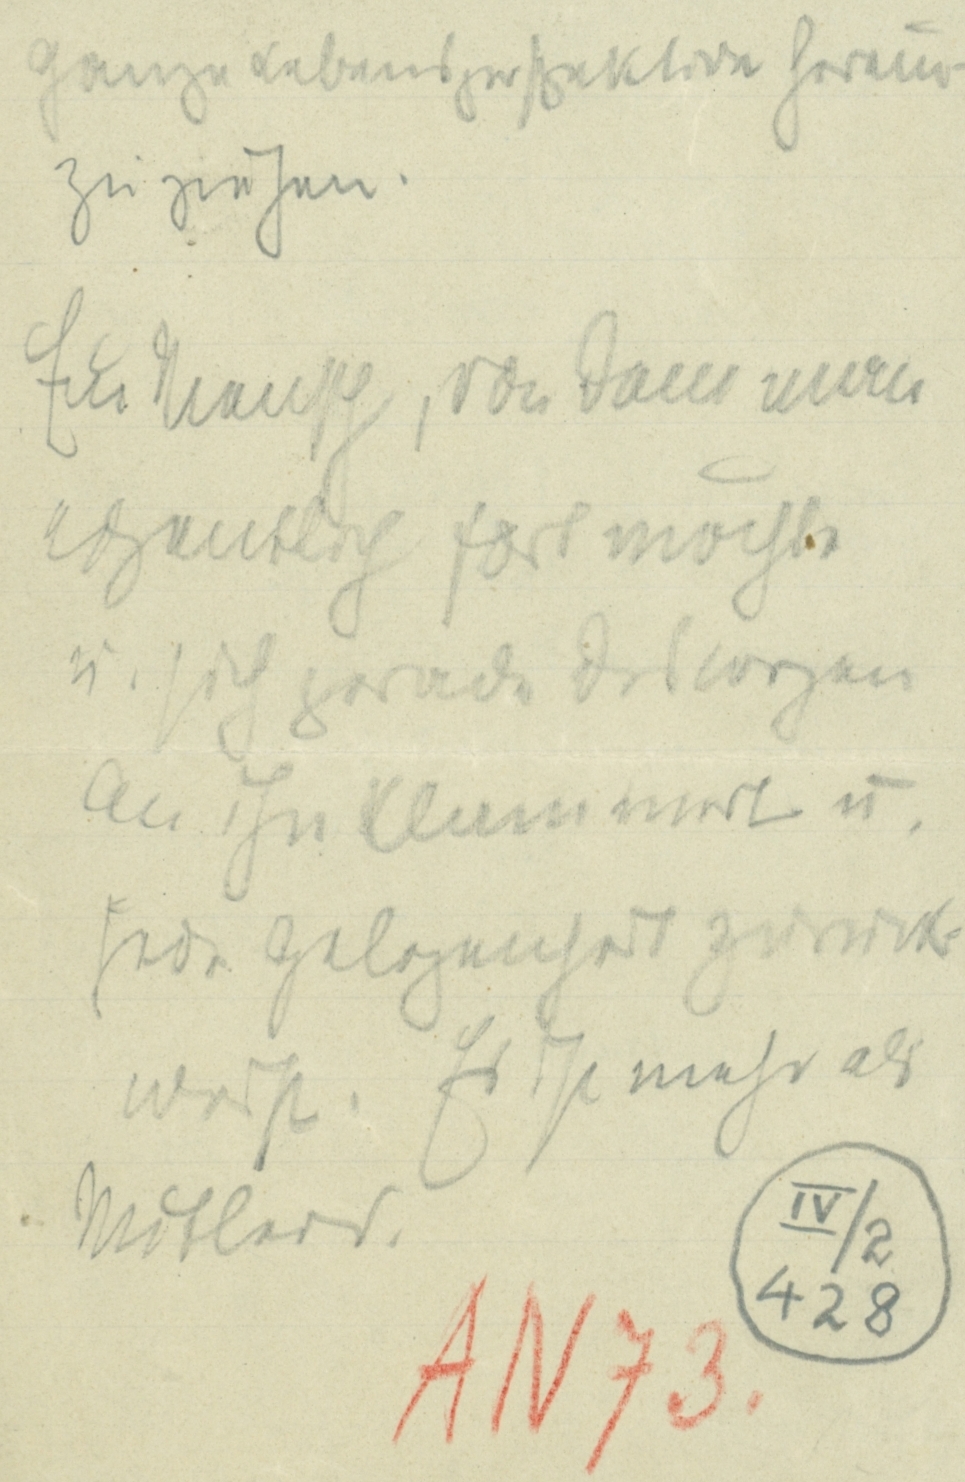 ganze Lebensperspektive herein
zu ziehen.
Ein Mensch, von dem man
eigentlich fort möchte
u. sich gerade deswegen
an ihn klammert u.
jede Gelegenheit zurück-
weist. Es ist mehr als
Mitleid.
IV/2
428
AN 73.